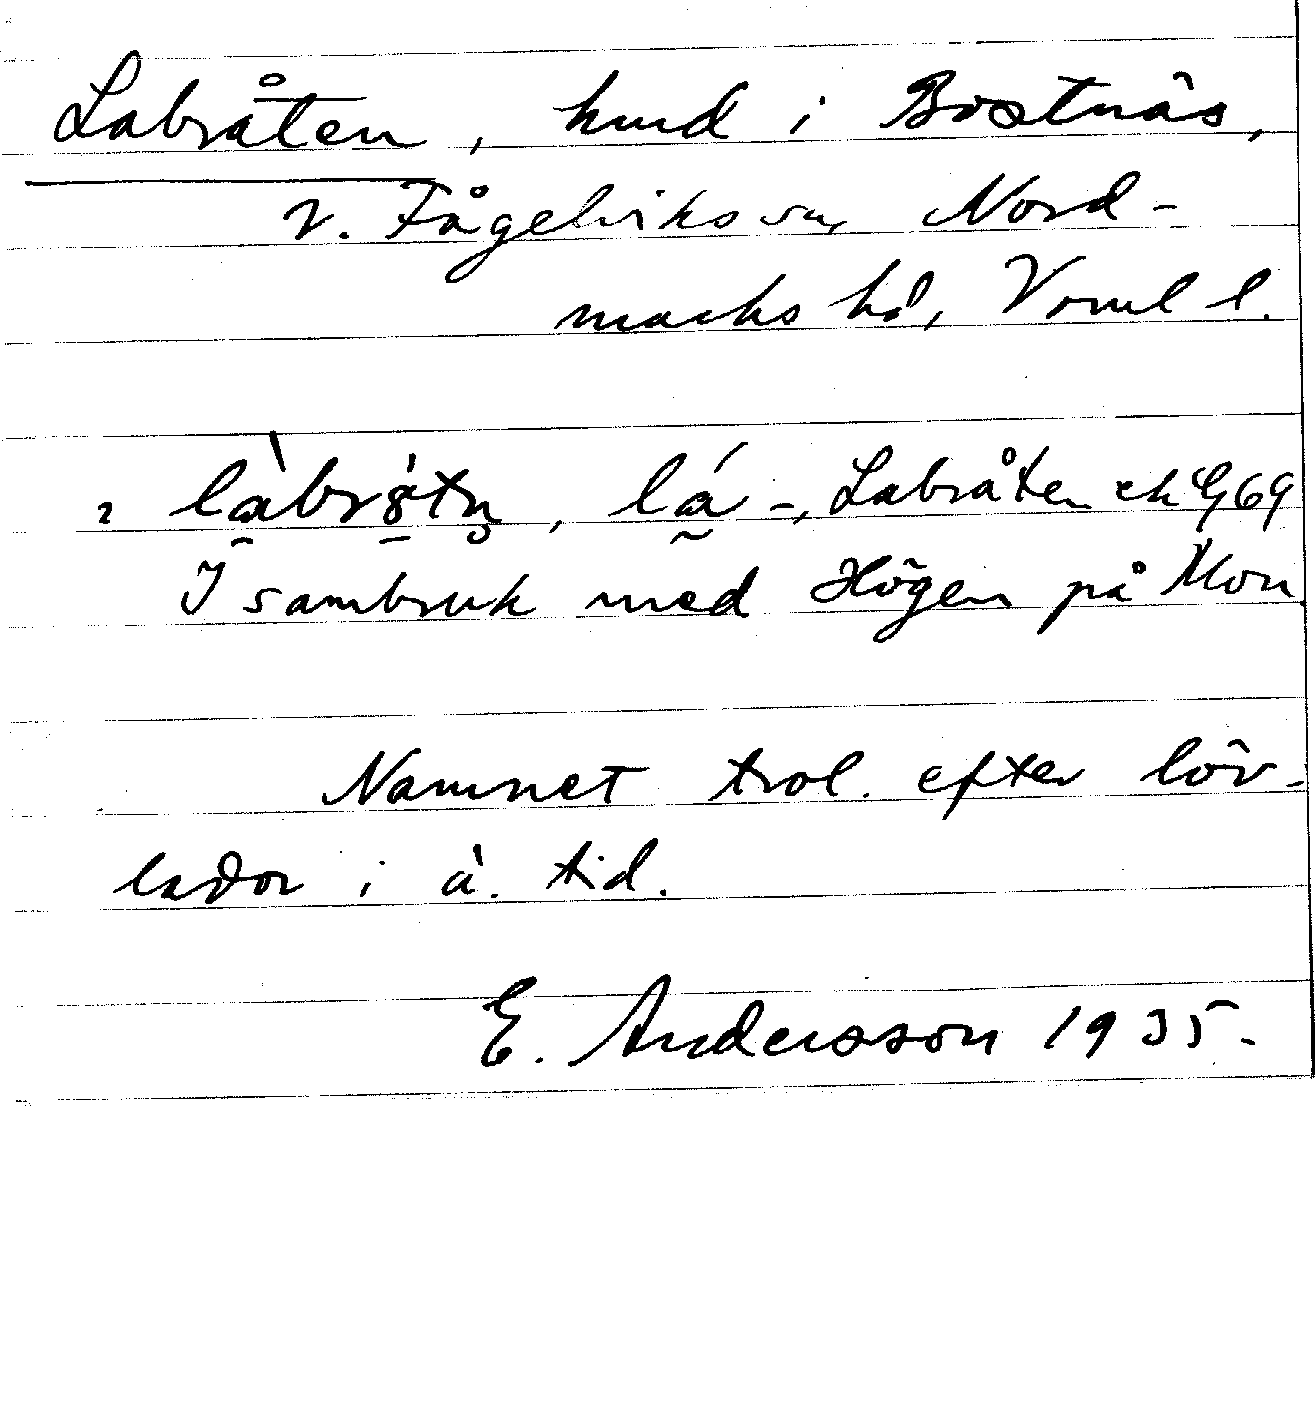 Labråten, hmd i Bostnäs,
V. Fågelviks sn, Nord-
marks hd, Vrml l.
2 làbrò̀tn̥, lá -, Labråten ek G 69
I sambruk med Högen på Mon
Namnet trol. efter löv-
lador i ä. tid.
E. Andersson 1935.